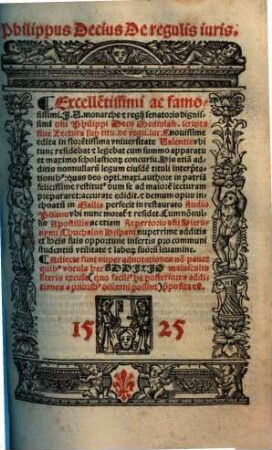 Philippus Decius De regulis iuris.
Excellẽtissimi ac famo-
sissimi. J. U. monarche et regij senatoris dignis-
simi dñi Philippi Decij Mediolañ. scripta
siue Lectura sup titu. de regu. iur. Nouissime
edita in florẽtissima vniuersitate Valentie: vbi
tunc residebat et legebat cum summo apparatu
et maximo scholasticoꝝ concursu. His etiã additis
nonnullarũ legum eiusdẽ tituli interpta-
tionibꝰ: quas deo opti. maxi. authore in patriã
felicissime restitutꝰ dum se ad maiorẽ lecturam
prępararet: accurate edidit. et demum opus in-
choatũ in Gallia perfecit in restaurato studio
Pisano: vbi nunc morat̃ et residet. Cum nõnul-
lis Apostillis: ac etiam Repertorio dñi Hiero-
nymi Chuchalon Hispani nuperrime additis et
locis suis opportune insertis pro communi
studentiũ vtilitate et laboꝝ suoꝝ leuamine.
Additę sunt nuper adnotationes nõ pauce
quibꝰ vocula hęc ADDITIO maiusculis
literis excusa
15 25